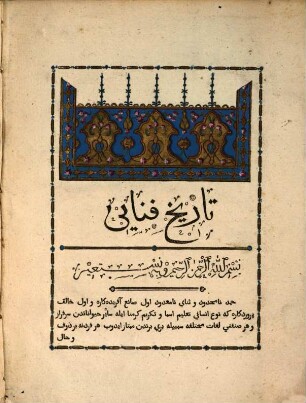 تاريخ فنايى
بسم الله الرحمن الرحيم وبه نستعين
حمد نامعدود و ثناى نامحدود اول صانع آفريده‌كاره و اول خالق
پروردكاره كه نوع انسانى تعليم اسما و تكريم كرمنا ايله سائر حيواناتدن سرفراز
و هر صنفنى لغات مختلفه سببيله برى برندن ممتاز ايدوب هر فردنه بر ذوق
و حال